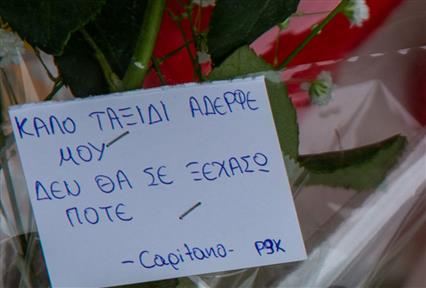 ΚΑΛΟ ΤΑΞΙΔΙ ΑΔΕΡΦΕ
ΜΟΥ
ΔΕΝ ΘΑ ΣΕ ΞΕΧΑΣΩ
ΠΟΤΕ
-Capitano- P9K